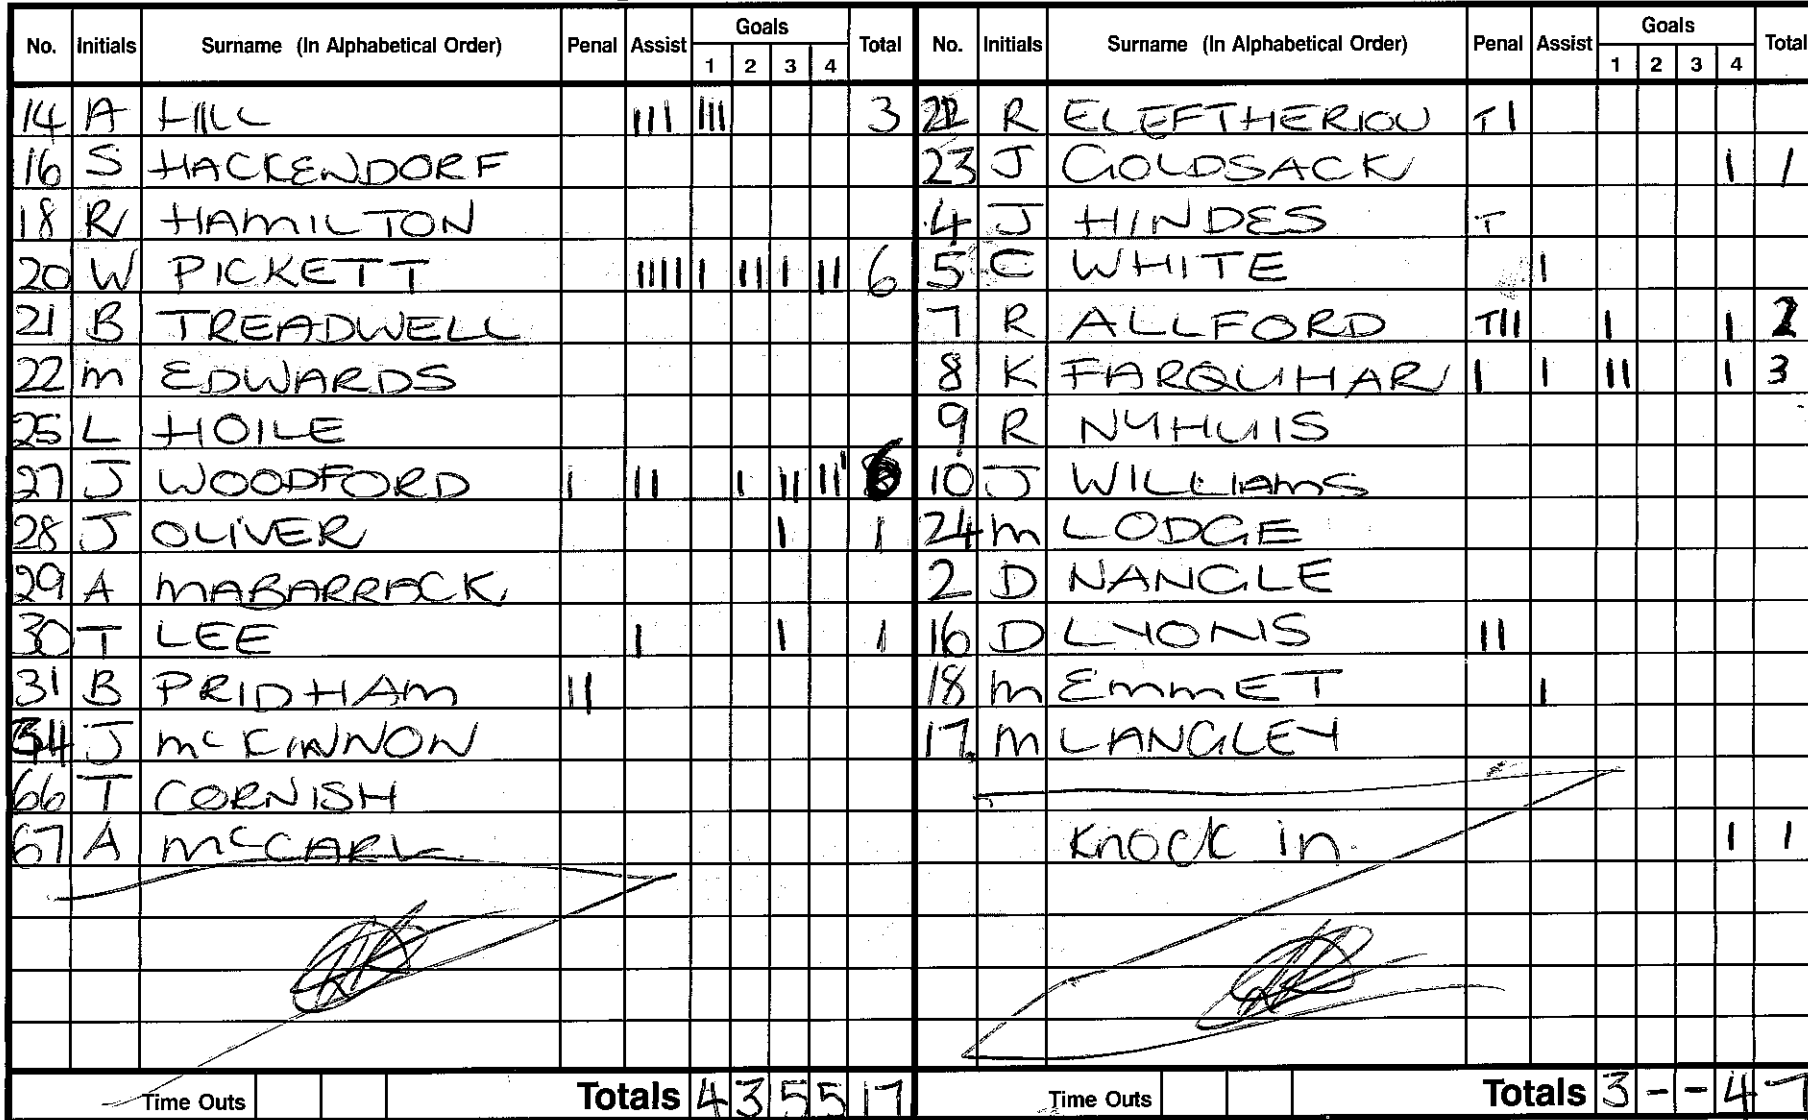 No. Initials Surname (In Alphabetical Order) Penal Assist Goals 1 2 3 4 Total
14 A HILL III III 3
16 S HACKENDORF
18 R HAMILTON
20 W PICKETT IIIII I II I II 6
21 B TREADWELL
22 m EDWARDS
25 L HOILE
27 J WOODFORD I II I II III 6
28 J OLIVER I 1
29 A MABARRACK
30 T LEE I I 1
31 B PRIDHAM II
34 J McKINNON
66 T CORNISH
67 A McCARL
Time Outs Totals 4 3 5 5 17
No. Initials Surname (In Alphabetical Order) Penal Assist Goals 1 2 3 4 Total
R ELEFTHERIOU TI
23 J GOLDSACK I 1
4 J HINDES T
5 C WHITE I
7 R ALLFORD TII I I 2
8 K FARQUHAR I I II I 3
9 R NYHUIS
10 J WILLIAMS
24 m LODGE
2 D NANGLE
16 D LYONS II
18 m EMMET I
17 m LANGLEY
Knock in. I 1
Time Outs Totals 3 - - 4 7